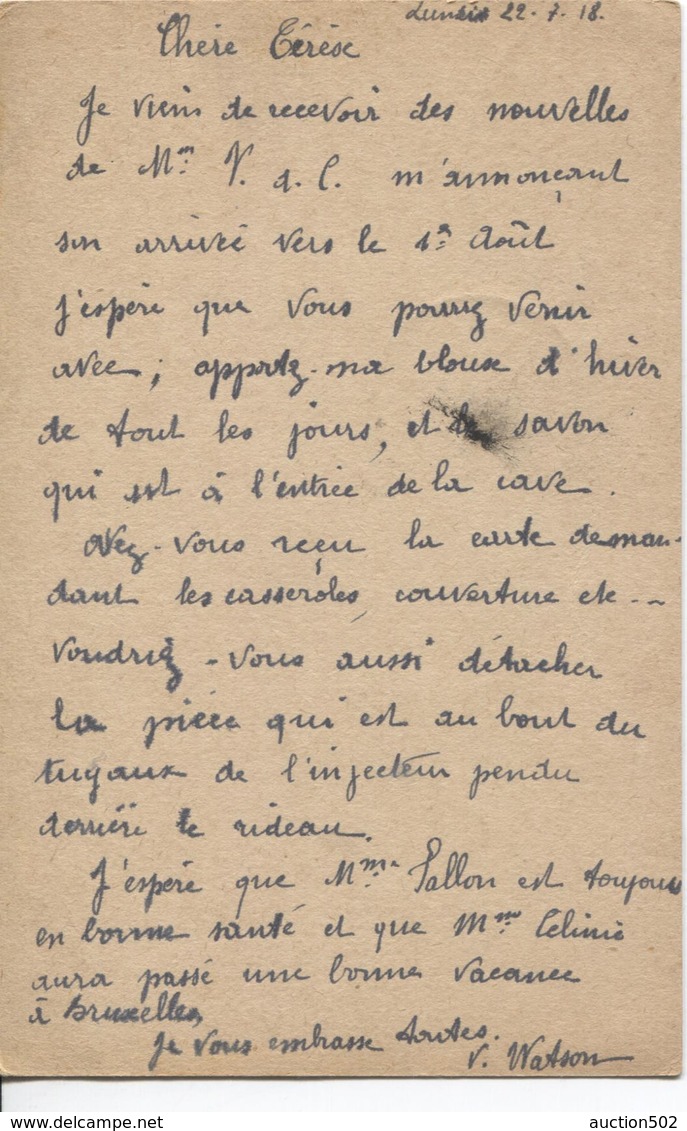 Lundi 22-7-18.
Chère Térèse
Je viens de recevoir des nouvelles
de Mme V. d. C. m'annonçant
son arrivée vers le 1er Août
j'espère que vous pourrez venir
avec; apportez-ma blouse d'hiver
de tout les jours, et le savon
qui est à l'entrée de la cave.
Avez-vous reçu la carte deman-
dant les casseroles, couverture etc--
voudriez-vous aussi détacher
la pièce qui est au bout du
tuyaux de l'injecteur pendu
derrière le rideau.
J'espère que Mme Pallon est toujours
en bonne santé et que Mme Célinie
aura passé une bonne vacance
à Bruxelles,
Je vous embrasse toutes.
V. Watson
auction502